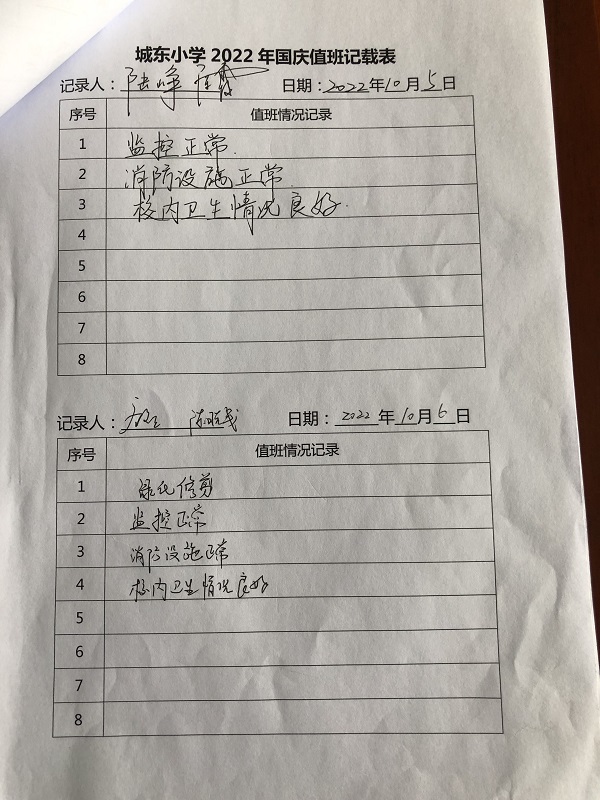 城东小学 2022 年国庆值班记载表
记录人：陆峰 日期：2022年10月5日
序号 值班情况记录
1 监控正常.
2 消防设施正常.
3 校内卫生情况良好.
4
5
6
7
8
记录人： 陈 日期：2022年10月6日
序号 值班情况记录
1 绿化修剪
2 监控正常
3 消防设施正常
4 校内卫生情况良好
5
6
7
8